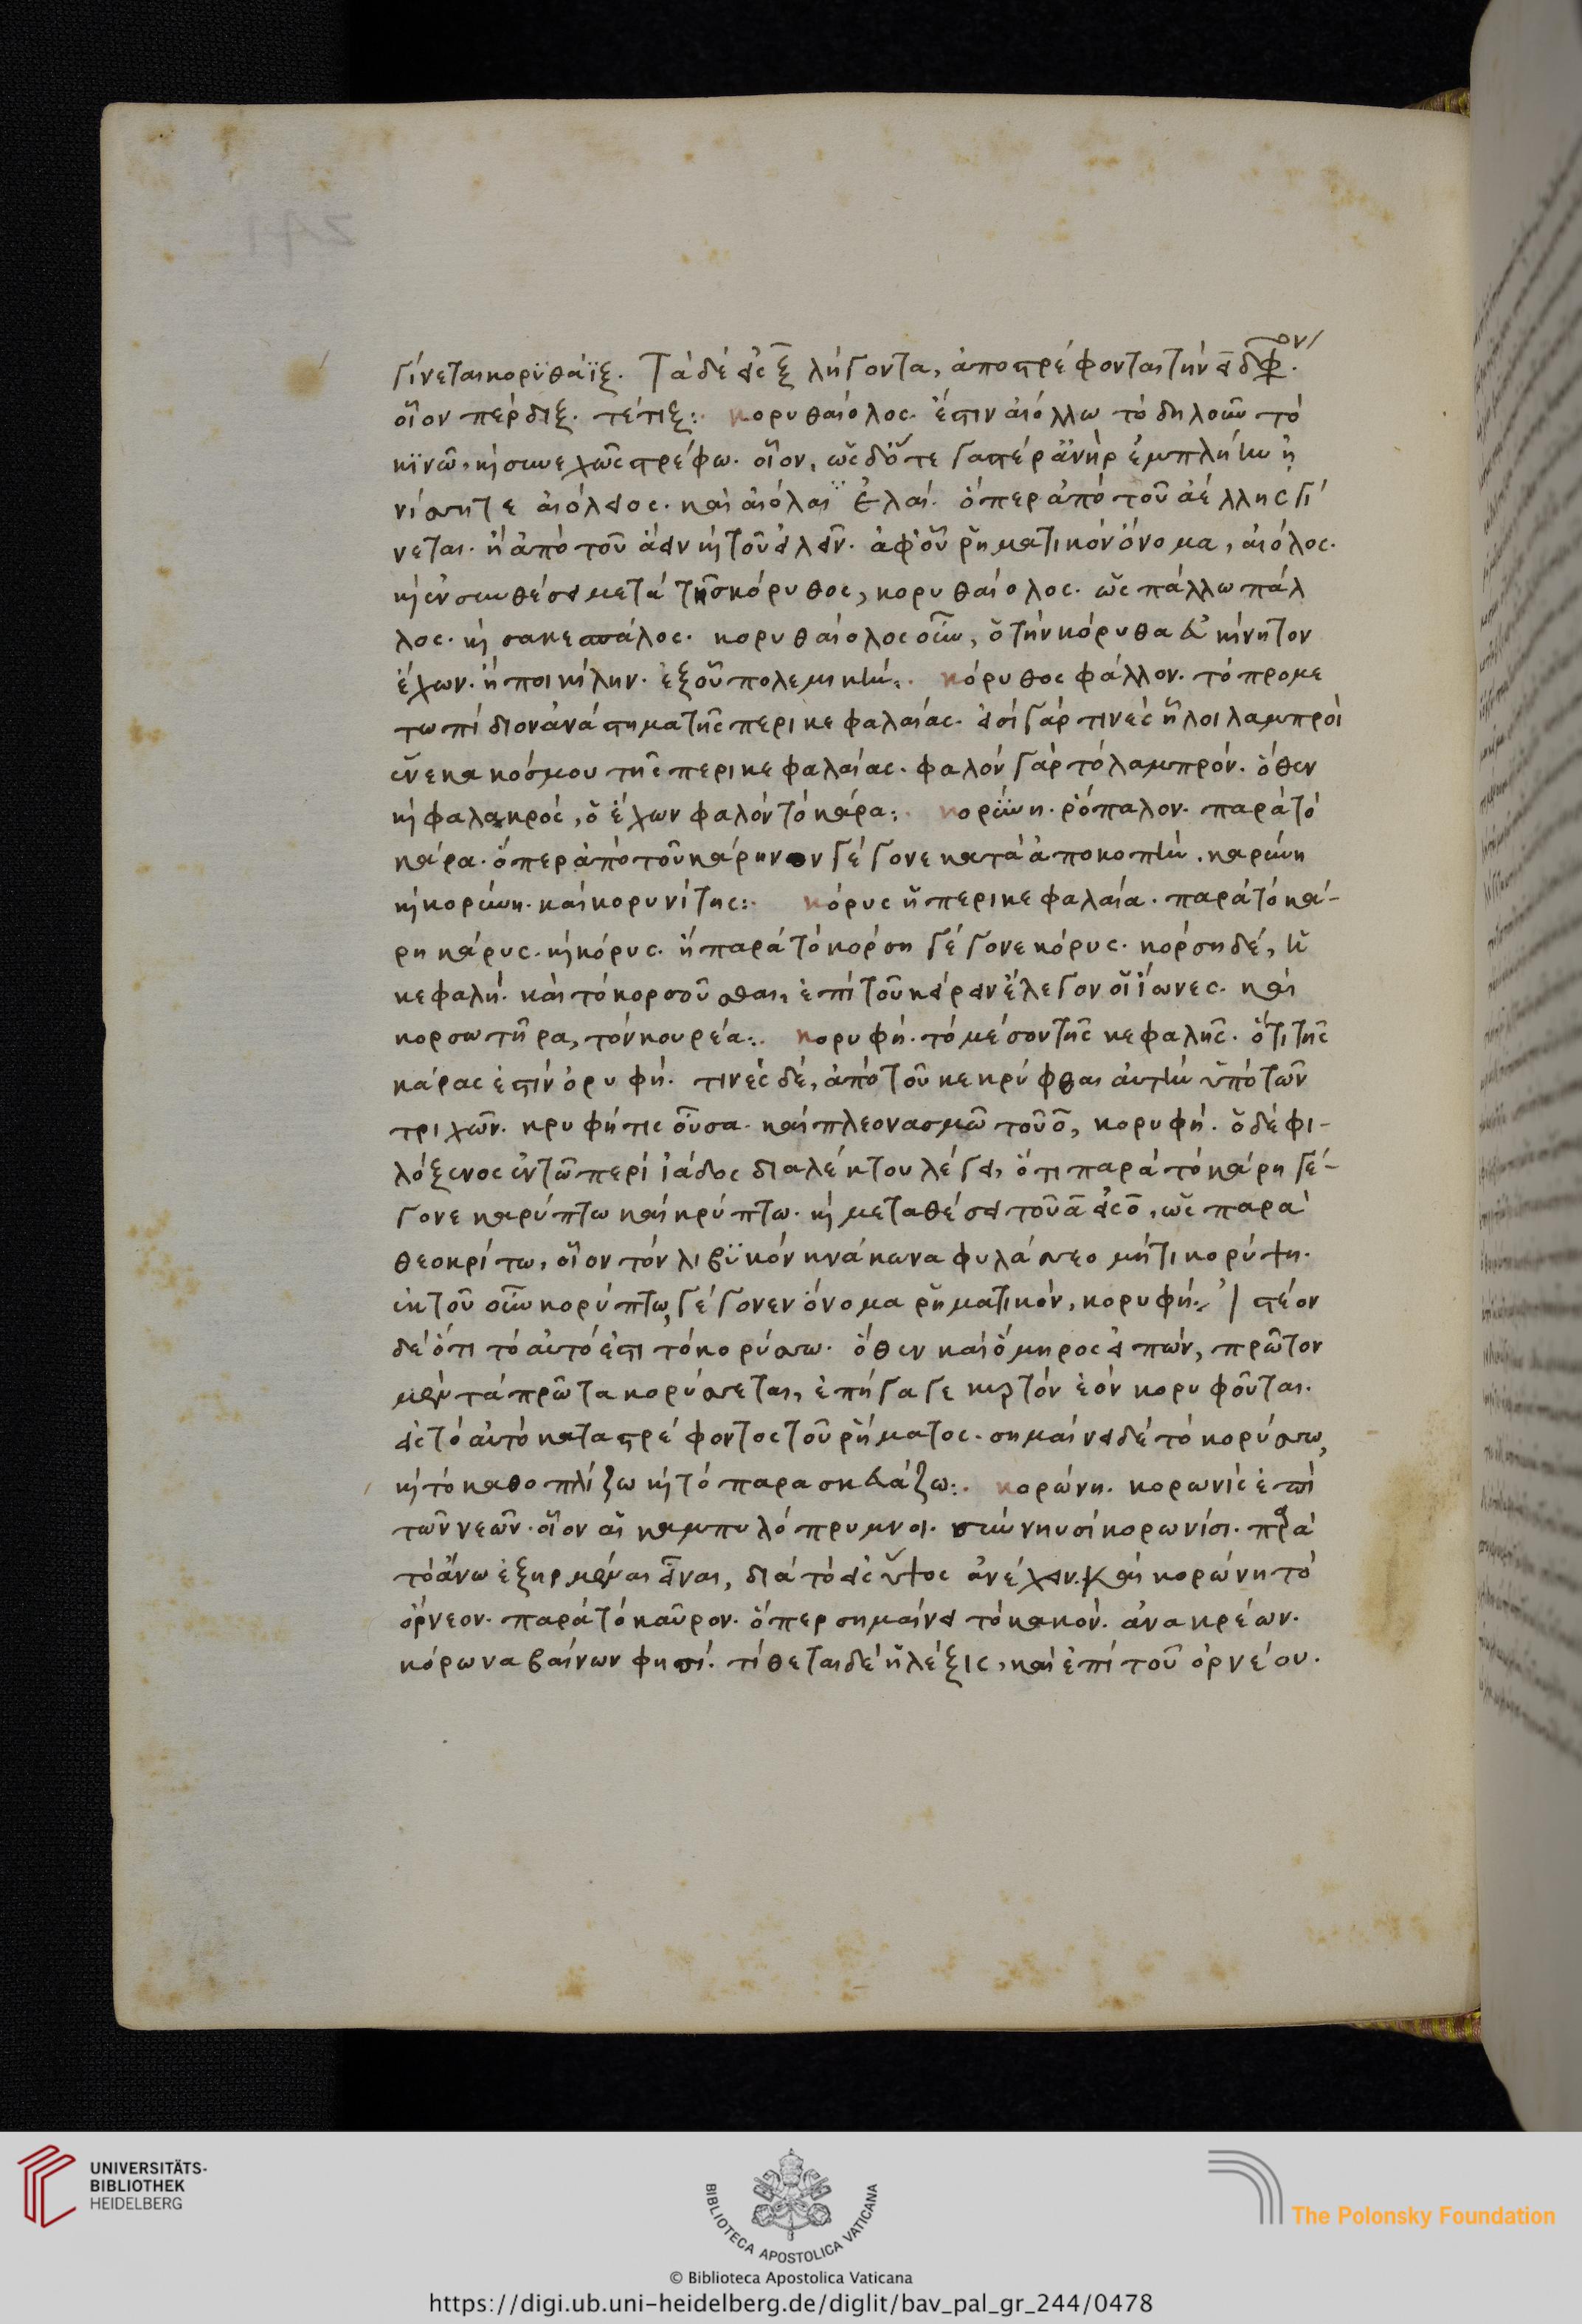 γίνεται κορϋθάϊξ. Τὰ δὲ εἰς ξ̄ λήγοντα, ἀποστρέφονται τὴν ει δφ̄ον.
οἷον πέρδιξ. τέτιξ:. κορυθαίολος. ἔστιν αἰόλλω τὸ δηλοῦν τὸ
κϊνῶ, κỳ συνεχῶς στρέφω. οἷον, ὡς δ' ὅτε γαστέρ ἀνὴρ ἐμπλήην κỳ
νίσσητε αἰόλειος. καὶ αἰόλαϊ ἐλαί. ὅπερ ἀπὸ τοῦ ἀέλλης γί
νεται. ἢ ἀπὸ τοῦ ἄειν κỳ τοῦ εἰλεῖν. ἀφ' οὗ ῥηματικὸν ὄνομα, αἰόλος.
κỳ ἐν συνθέσει μετὰ τῆς κόρυθος, κορυθαίολος. ὡς πάλλω πάλ
λος. κỳ σακεσπάλος. κορυθαίολος οὖν, ὁ τὴν κόρυθα εὐκίνητον
ἔχων. ἢ ποικίλην. ἐξ οὗ πολεμικήν:. κόρυθος φάλλον. τὸ προμε
τωπίδιον ἀνάστημα τῆς περικεφαλαίας. εἰσὶ γάρ τινες ἧλοι λαμπροὶ
ἕνεκα κόσμου τῆς περικεφαλαίας. φαλὸν γὰρ τὸ λαμπρόν. ὅθεν
κỳ φαλακρός, ὁ ἔχων φαλὸν τὸ κάρα:. κορύνη. ῥόπαλον. παρὰ τὸ
κάρα. ὅπερ ἀπὸ τοῦ κάρηνον γέγονε κατὰ ἀποκοπήν. καρύνη
κỳ κορύνη. καὶ κορυνίτης:. κόρυς ἡ περικεφαλαία. παρὰ τὸ κά-
ρη κάρυς. κỳ κόρυς. ἢ παρὰ τὸ κόρση γέγονε κόρυς. κόρση δέ, ἡ
κεφαλή. καὶ τὸ κορσοῦσθαι, ἐπὶ τοῦ κείρειν ἔλεγον οἱ ἴωνες. καὶ
κορσωτῆρα, τὸν κουρέα:. κορυφή. τὸ μέσον τῆς κεφαλῆς. ὅτι τῆς
κάρας ἐστὶν ὀρυφή. τινὲς δέ, ἀπὸ τοῦ κεκρύφθαι αὐτὴν ὑπὸ τῶν
τριχῶν. κρυφή τις οὖσα. καὶ πλεονασμῶ τοῦ ο̄, κορυφή. ὁ δὲ φι-
λόξενος ἐν τῶ περὶ ἰάδος διαλέκτου λέγει, ὅτι παρὰ τὸ κάρη γέ-
γονε καρύπτω καὶ κρύπτω. κỳ μεταθέσει τοῦ ᾱ εἰς ο̄, ὡς παρὰ
θεοκρίτω, οἷον τὸν λιβϋκὸν κνάκωνα φυλάσσεο μήτι κορύψη.
ἐκ τοῦ οὖν κορύπτω, γέγονεν ὄνομα ῥηματικόν, κορυφή:. Ἰστέον
δὲ ὅτι τὸ αὐτό ἐστι τὸ κορύσσω. ὅθεν καὶ ὅμηρος εἰπών, πρῶτον
μὲν τὰ πρῶτα κορύσσεται, ἐπήγαγε κυρτὸν ἐὸν κορυφοῦται.
εἰς τὸ αὐτὸ καταστρέφοντος τοῦ ῥήματος. σημαίνει δὲ τὸ κορύσσω,
κỳ τὸ καθοπλίζω κỳ τὸ παρασκευάζω:. κορώνη. κορωνὶς ἐπὶ
τῶν νεῶν. οἷον αἱ καμπυλόπρυμνοι. σὺν νηυσὶ κορωνίσι. παρὰ
τὸ ἄνω ἐξηρμέναι εἶναι, διὰ τὸ εἰς ὕψος ἀνέχειν. καὶ κορώνη τὸ
ὄρνεον. παρὰ τὸ καῦρον. ὅπερ σημαίνει τὸ κακόν. ἀνακρέων.
κόρωνα βαίνων φησί. τίθεται δὲ ἡ λέξις, καὶ ἐπὶ τοῦ ὀρνέου.
UNIVERSITÄTS-
BIBLIOTHEK
HEIDELBERG
BIBLIOTECA APOSTOLICA VATICANA
The Polonsky Foundation
© Biblioteca Apostolica Vaticana
https://digi.ub.uni-heidelberg.de/diglit/bav_pal_gr_244/0478